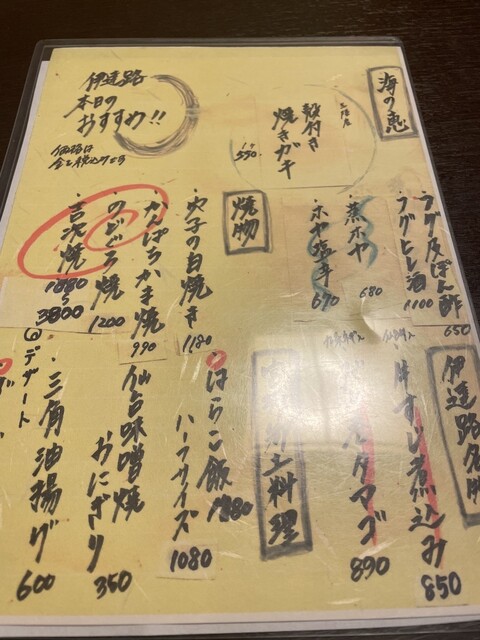 海の恵
三陸産
殻付き
焼きガキ
1ヶ
550
伊達路
本日の
おすすめ!!
価格は
全て税込です
・フグ皮ぽん酢
650
・フグヒレ酒
1100
・蒸ホヤ
680
・ホヤ塩辛
690
焼物
・穴子の白焼き
1180
・かんぱちかま焼
990
・のどぐろ焼
1200
・吉次焼
1880
〜
3800
伊達路名物
・牛すじ煮込み
850
タマゴ
890
土料理
・はらこ飯
1880
ハーフサイズ
1080
・仙台味噌焼
おにぎり
350
・三角油揚げ
600
◎デザート